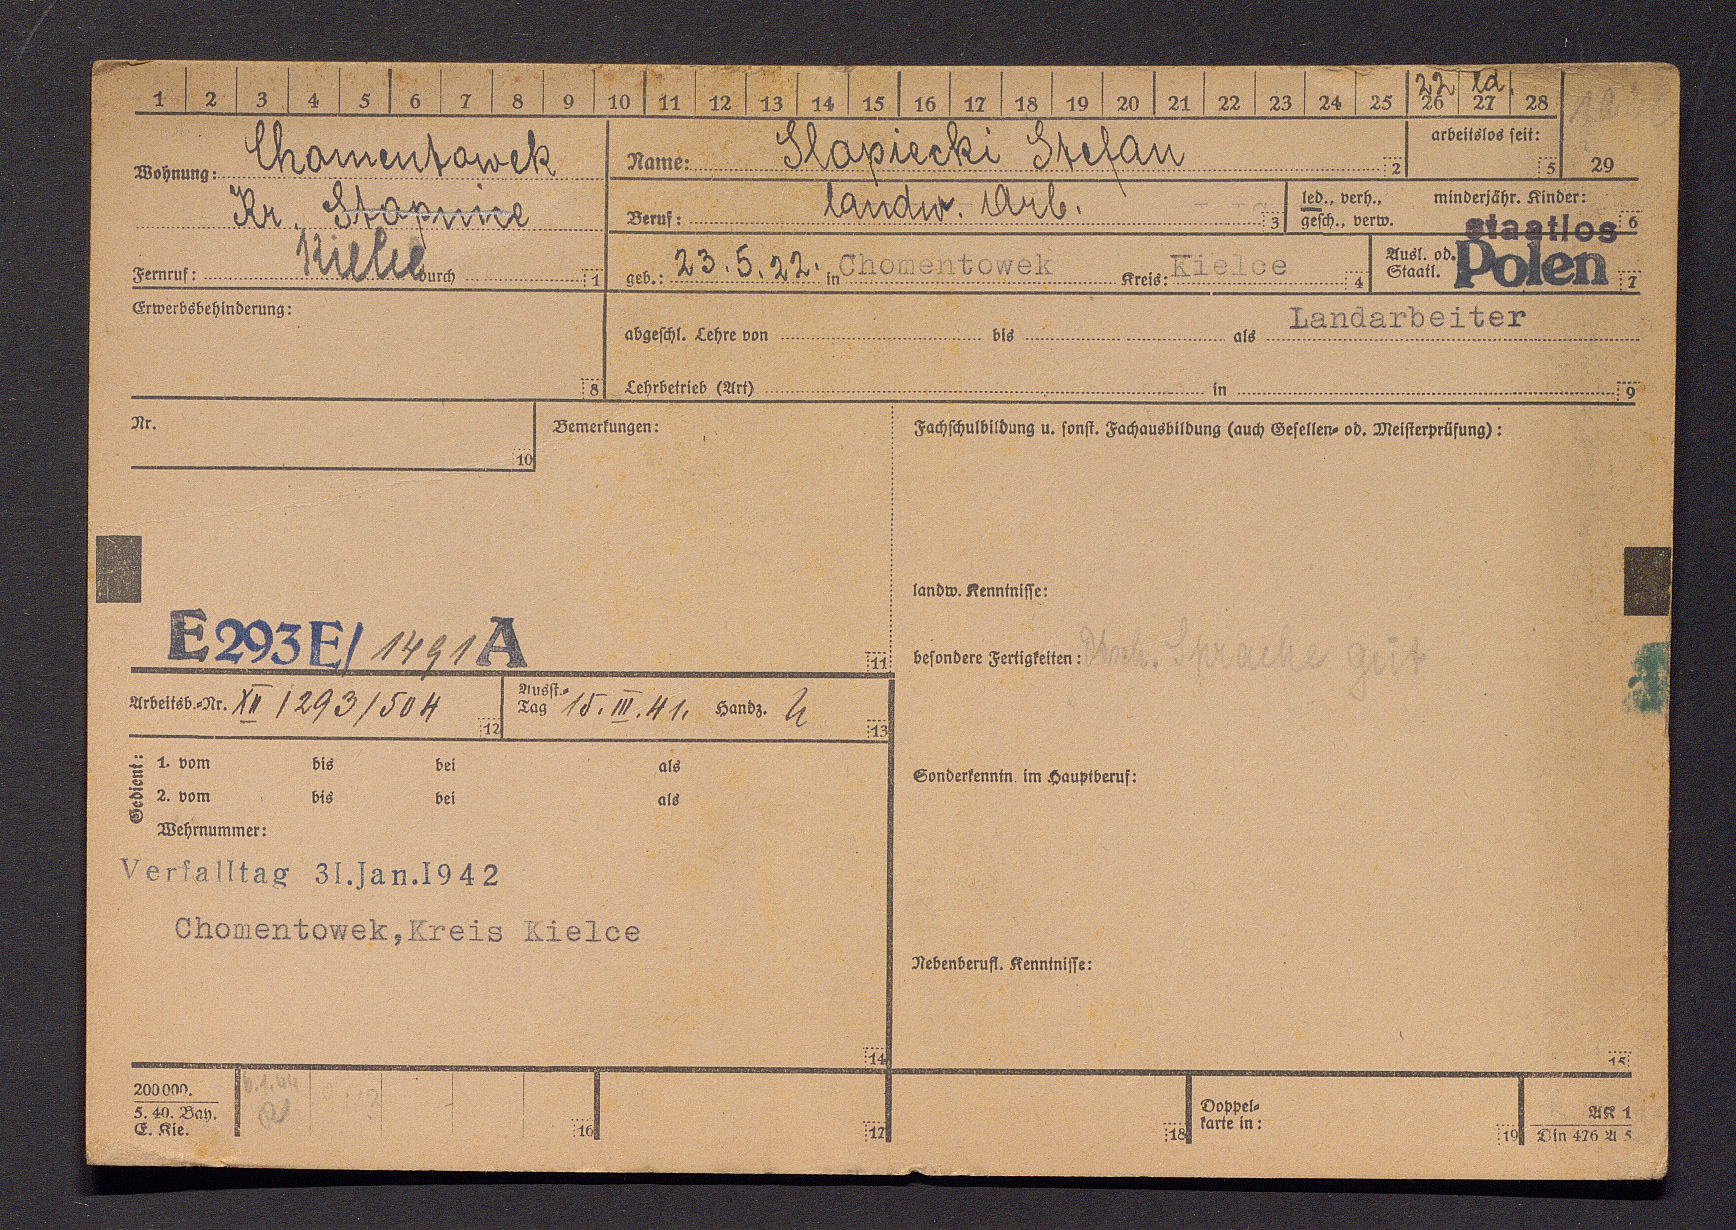 1 2 3 4 5 6 7 8 9 10 11 12 13 14 15 16 17 18 19 20 21 22 23 24 25 26 27 28 29
22 ld.
Wohnung: Chomentowek
Kr. Stopnice
Kielce
Fernruf: durch 1
Name: Slapiecki Stefan 2
arbeitslos seit: 5
Beruf: landw. Arb. 3
led., verh., gesch., verw.
minderjähr. Kinder: 6
geb.: 23.5.22. in Chomentowek Kreis: Kielce 4
Ausl. od. Staatl. staatlos Polen 7
Erwerbsbehinderung: 8
abgeschl. Lehre von bis als Landarbeiter
Lehrbetrieb (Art) in 9
Nr. 10
Bemerkungen:
Fachschulbildung u. sonst. Fachausbildung (auch Gesellen- od. Meisterprüfung):
landw. Kenntnisse:
E 293 E/ 1491 A 11
besondere Fertigkeiten: Dtsch. Sprache gut
Arbeitsb.-Nr. XII/293/504 12
Ausst.-Tag 15.III.41. Handz. 13
Gedient:
1. vom bis bei als
2. vom bis bei als
Wehrnummer:
Sonderkenntn. im Hauptberuf:
Verfalltag 31.Jan.1942
Chomentowek,Kreis Kielce
14
Nebenberufl. Kenntnisse:
15
200000.
5. 40. Bay.
E. Kie.
6.1.44
16 17 18
Doppel-
karte in: 19
AK 1
Din 476 A 5